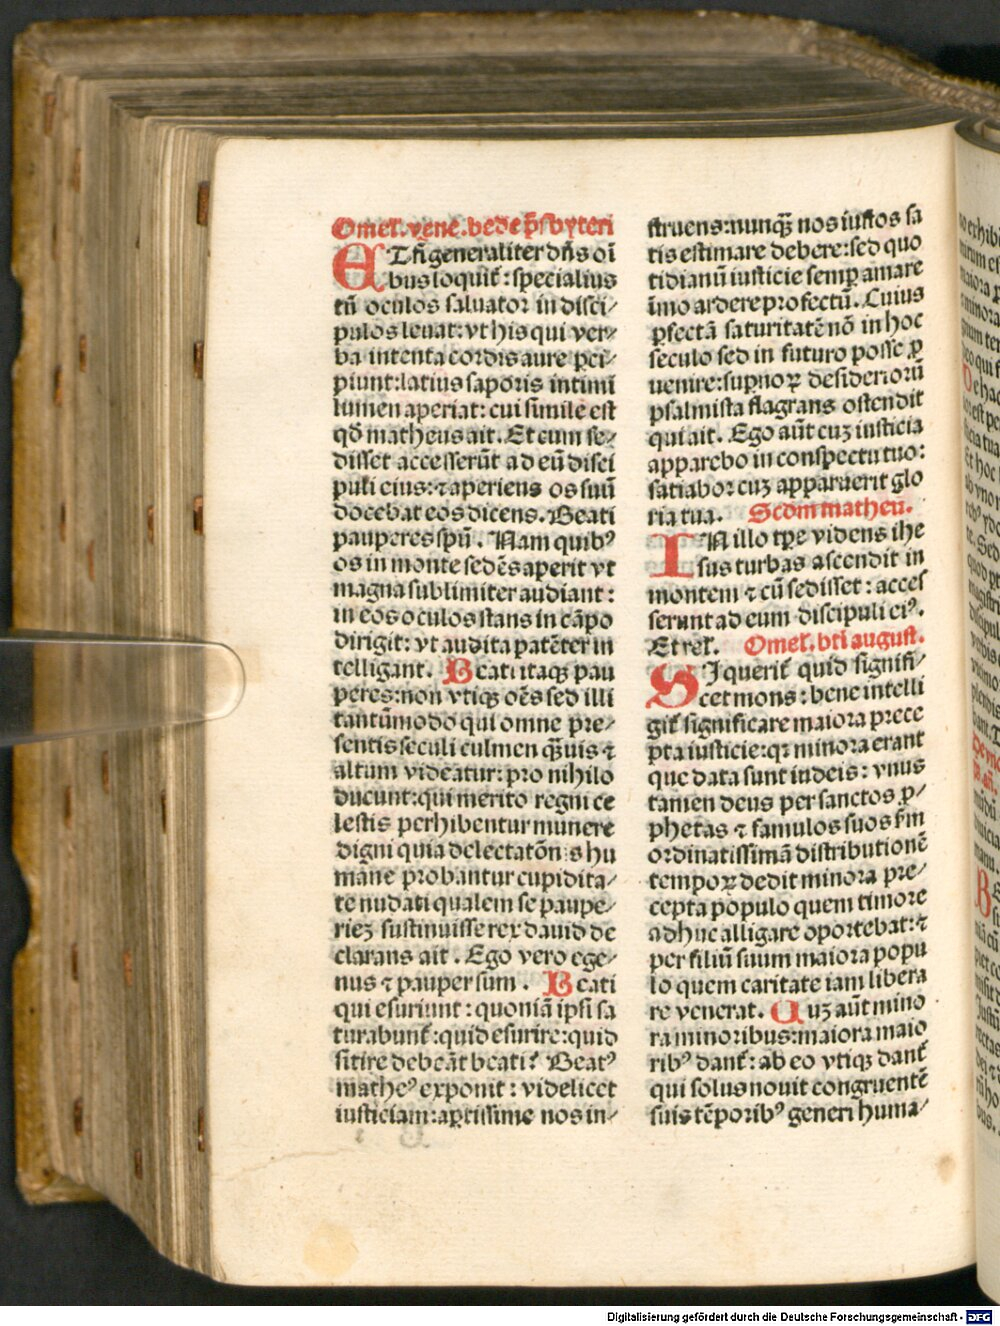 Omel̃. vene. bede p̃sbyteri
ETſi generaliter dñs oĩ
bus loquit̃: specialius
tñ oculos saluator in disci⸗
pulos leuat: vt his qui ver⸗
ba intenta cordis aure ꝑci⸗
piunt: latius saporis intimi
lumen aperiat: cui simile est
qđ matheus ait. Et cum se⸗
disset accesserũt ad eũ disci
puli eius: ⁊ aperiens os suũ
docebat eos dicens. Beati
pauperes spũ. Nam quibꝰ
os in monte sedẽs aperit vt
magna sublimiter audiant:
in eos oculos stans in cãpo
dirigit: vt audita patẽter in
telligant. Beati itaqꝫ pau
peres: non vtiqꝫ oẽs sed illi
tantũmodo qui omne pre⸗
sentis seculi culmen q̃uis ⁊
altum videatur: pro nihilo
ducunt: qui merito regni ce
lestis perhibentur munere
digni quia delectatõnis hu
mane probantur cupidita⸗
te nudati qualem se paupe⸗
rieꝫ sustinuisse rex dauid de
clarans ait. Ego vero ege⸗
nus ⁊ pauper sum. Beati
qui esuriunt: quoniã ipsi sa
turabunt̃: quid esurire: quid
sitire debeãt beati? Beatꝰ
matheꝰ exponit: videlicet
iusticiam: aꝑtissime nos in⸗
struens: nunq̃ nos iustos sa
tis estimare debere: sed quo
tidianũ iusticie semꝑ amare
ĩmo ardere profectũ. Cuius
ꝑfectã saturitatẽ nõ in hoc
seculo sed in futuro posse ꝓ
uenire: suꝑnoꝝ desideriorũ
psalmista flagrans ostendit
qui ait. Ego aũt cuꝫ iusticia
apparebo in conspectu tuo:
satiabor cuꝫ apparuerit glo
ria tua. Scdm matheũ.
IN illo tꝑe videns ihe
sus turbas ascendit in
montem ⁊ cũ sedisset: acces
serunt ad eum discipuli eiꝰ.
Et rel̃. Omel̃. bti august.
SI querit̃ quid signifi⸗
cet mons: bene intelli
git̃ significare maiora prece
pta iusticie: qꝛ minora erant
que data sunt iudeis: vnus
tamen deus per sanctos ꝓ⸗
phetas ⁊ famulos suos s̃m
ordinatissimã distributionẽ
tempoꝝ dedit minora pre⸗
cepta populo quem timore
adhuc alligare oportebat: ⁊
per filiũ suum maiora popu
lo quem caritate iam libera
re venerat. Cuꝫ aũt mino
ra minoribus: maiora maio
ribꝰ dant̃: ab eo vtiqꝫ dant̃
qui solus nouit congruentẽ
suis tẽporibꝰ generi huma⸗
Digitalisierung gefördert durch die Deutsche Forschungsgemeinschaft - DFG